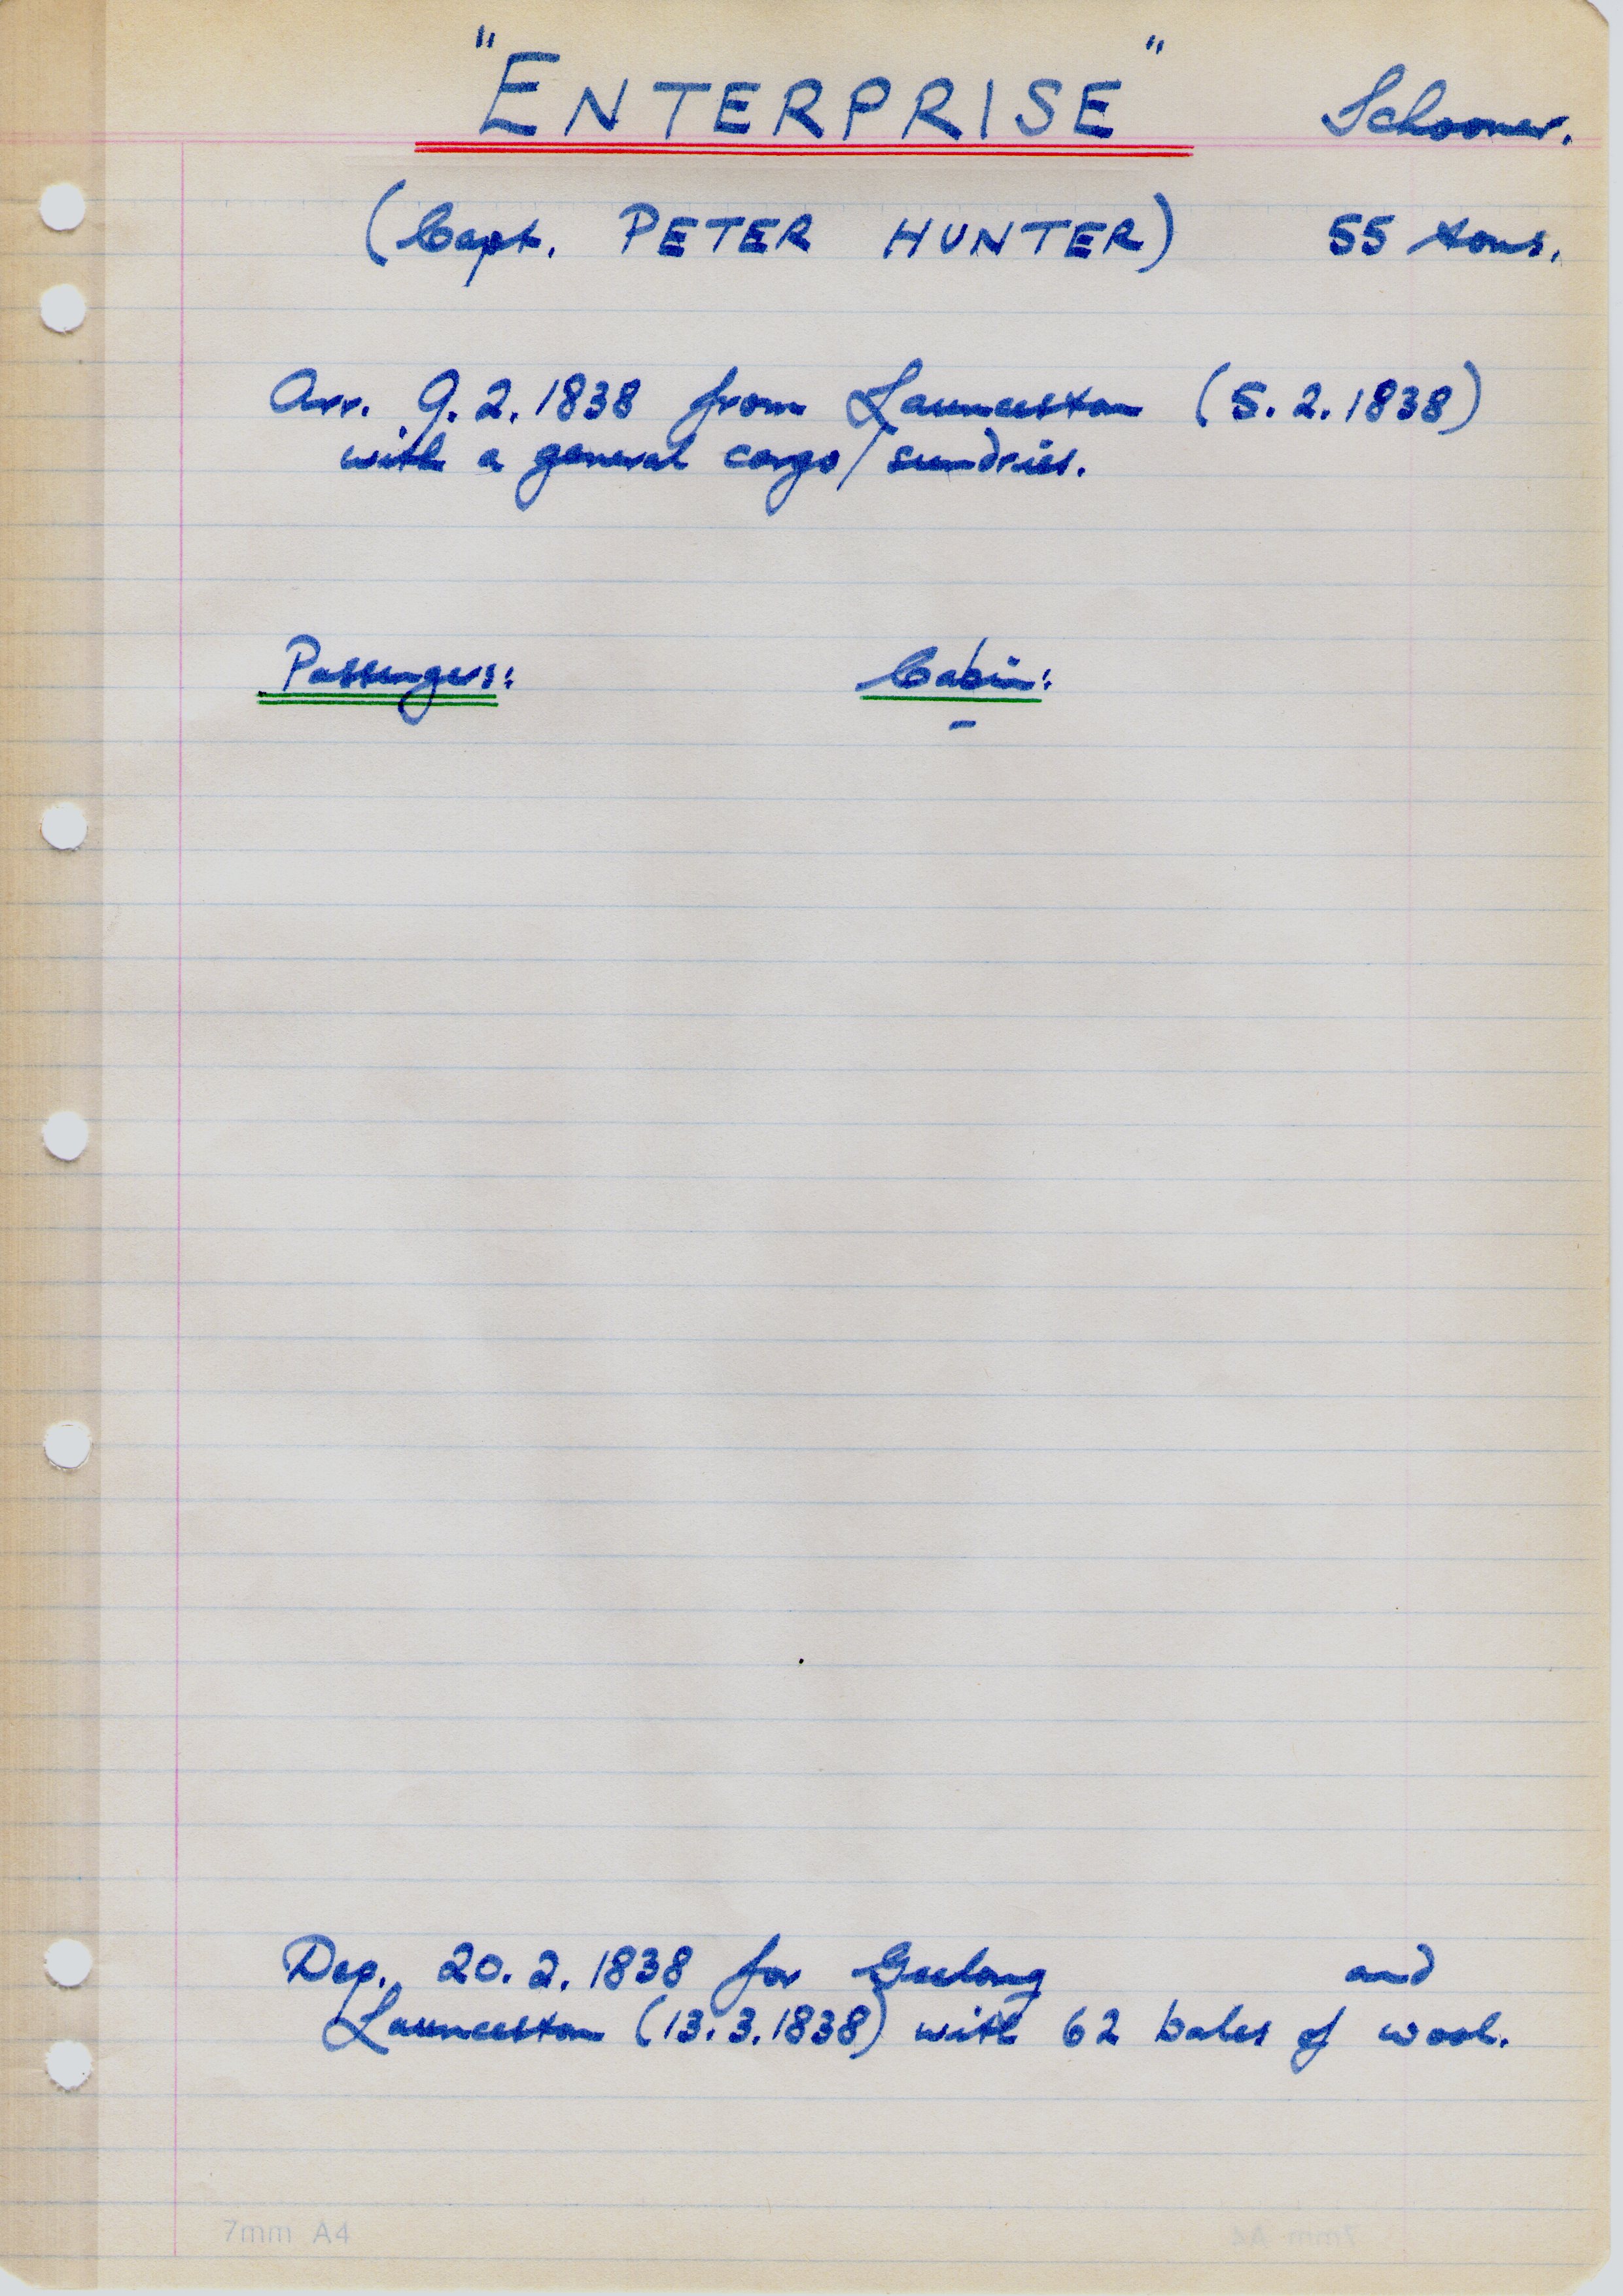 "ENTERPRISE" Schooner.
(Capt. PETER HUNTER) 55 tons.
Arr. 9.2.1838 from Launceston (5.2.1838)
with a general cargo/sundries.
Passengers: Cabin:
-
Dep. 20.2.1838 for Geelong and
Launceston (13.3.1838) with 62 bales of wool.
7mm A4